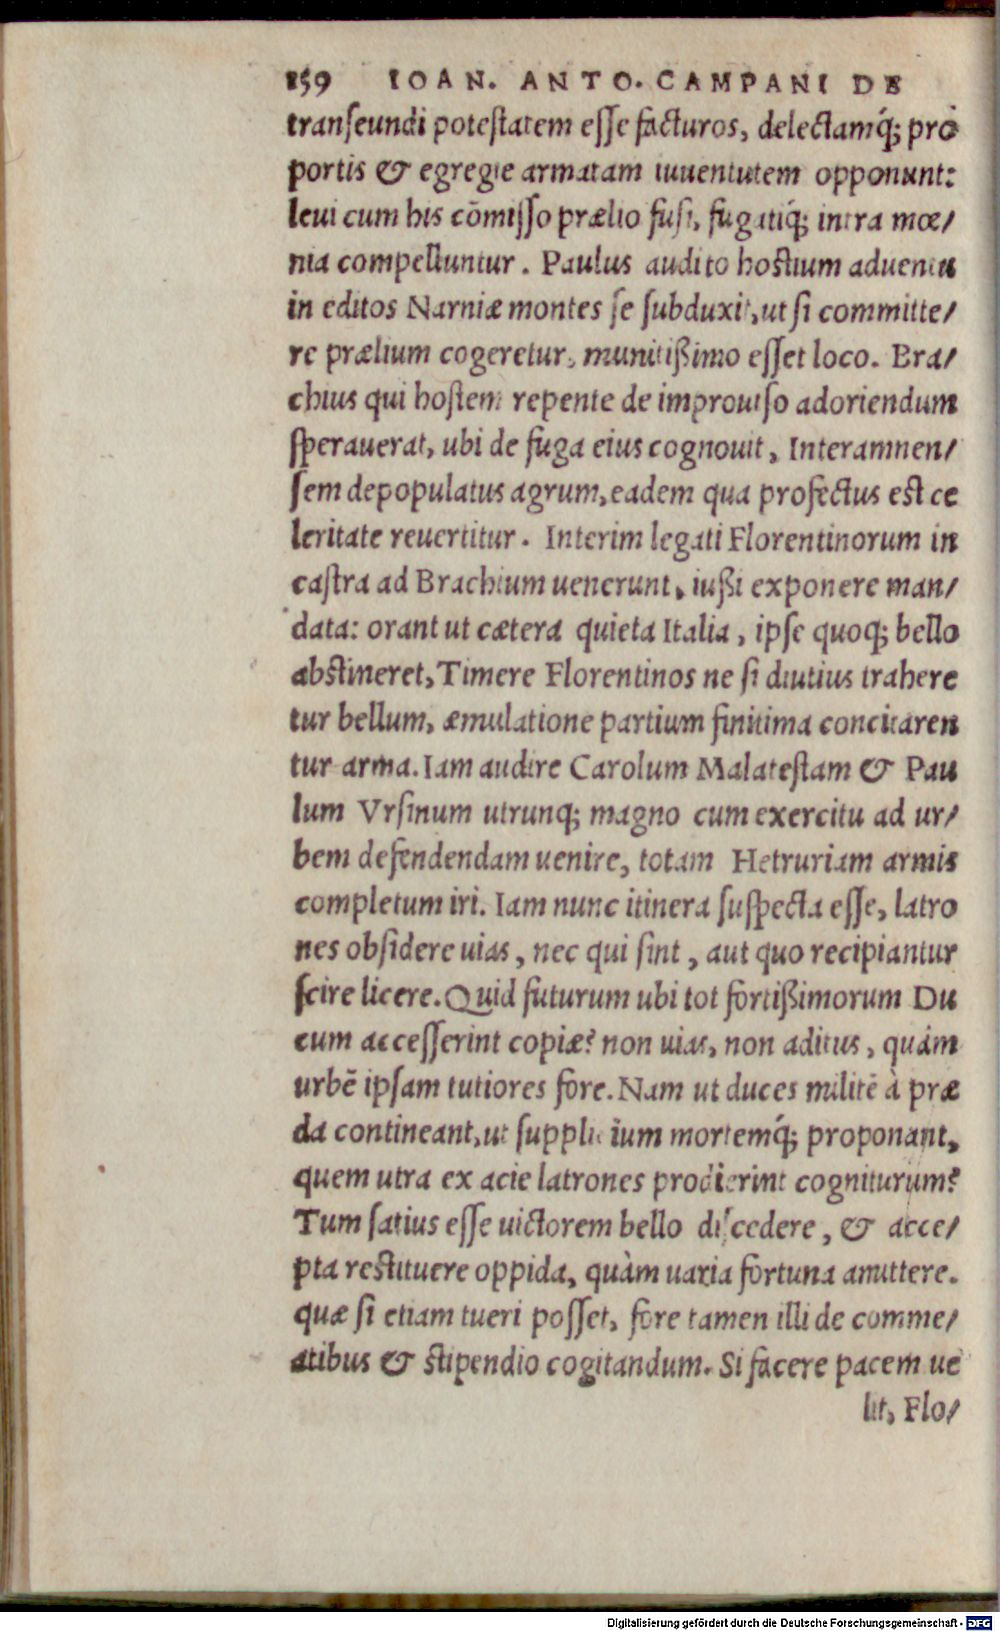 159 IOAN. ANTO. CAMPANI DE
transeundi potestatem esse facturos, delectamq́; pro
portis & egregie armatam iuuentutem opponunt:
leui cum his cōmisso prælio fusi, fugatiq́; intra mœ/
nia compelluntur. Paulus audito hostium aduentu
in editos Narniæ montes se subduxit, ut si committe/
re prælium cogeretur, munitißimo esset loco. Bra/
chius qui hostem repente de improuiso adoriendum
sperauerat, ubi de fuga eius cognouit, Interamnen/
sem depopulatus agrum, eadem qua profectus est ce
leritate reuertitur. Interim legati Florentinorum in
castra ad Brachium uenerunt, iußi exponere man/
data: orant ut cætera quieta Italia, ipse quoq; bello
abstineret, Timere Florentinos ne si diutius trahere
tur bellum, æmulatione partium finitima concitaren
tur arma. Iam audire Carolum Malatestam & Pau
lum Vrsinum utrunq; magno cum exercitu ad ur/
bem defendendam uenire, totam Hetruriam armis
completum iri. Iam nunc itinera suspecta esse, latro
nes obsidere uias, nec qui sint, aut quo recipiantur
scire licere. Quid futurum ubi tot fortißimorum Du
cum accesserint copiæ? non uias, non aditus, quàm
urbē ipsam tutiores fore. Nam ut duces militē à præ
da contineant, ut supplicium mortemq́; proponant,
quem utra ex acie latrones prodierint cogniturum?
Tum satius esse uictorem bello discedere, & acce/
pta restituere oppida, quàm uaria fortuna amittere.
quæ si etiam tueri posset, fore tamen illi de comme/
atibus & stipendio cogitandum. Si facere pacem ue
lit, Flo/
Digitalisierung gefördert durch die Deutsche Forschungsgemeinschaft - DFG